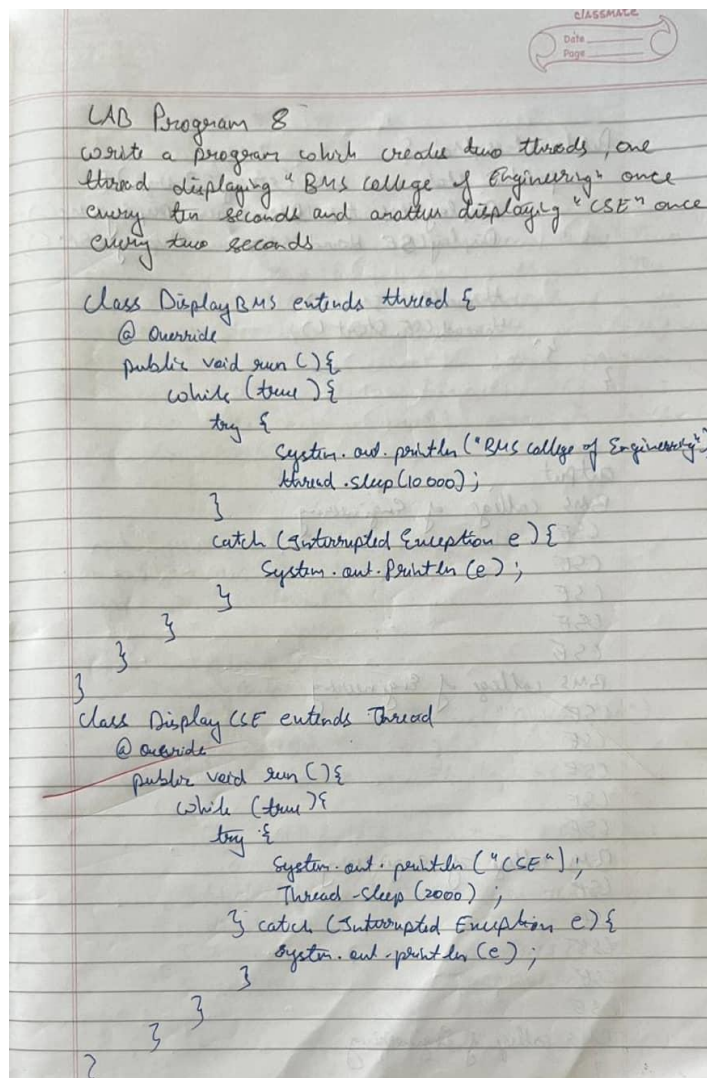 classmate
Date
Page
LAB Program 8
write a program which creates two threds, one
thread displaying "BMS college of Engineering" once
every ten seconds and another displaying "CSE" once
every two seconds
class DisplayBMS extends thread {
@ Override
public void run () {
while (true) {
try {
System.out.println ("BMS college of Engineering"
thread.sleep(10000);
}
catch (Interrupted Exception e) {
System.out.Println (e);
}
}
}
}
class Display CSE extends Thread
@ override
public void run () {
while (true) {
try {
System.out.println ("CSE");
Thread.sleep (2000) ;
} catch (Interrupted Exception e) {
System.out.println (e) ;
}
}
}
}